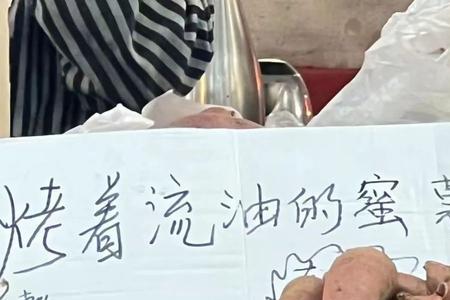 烤着流油的蜜